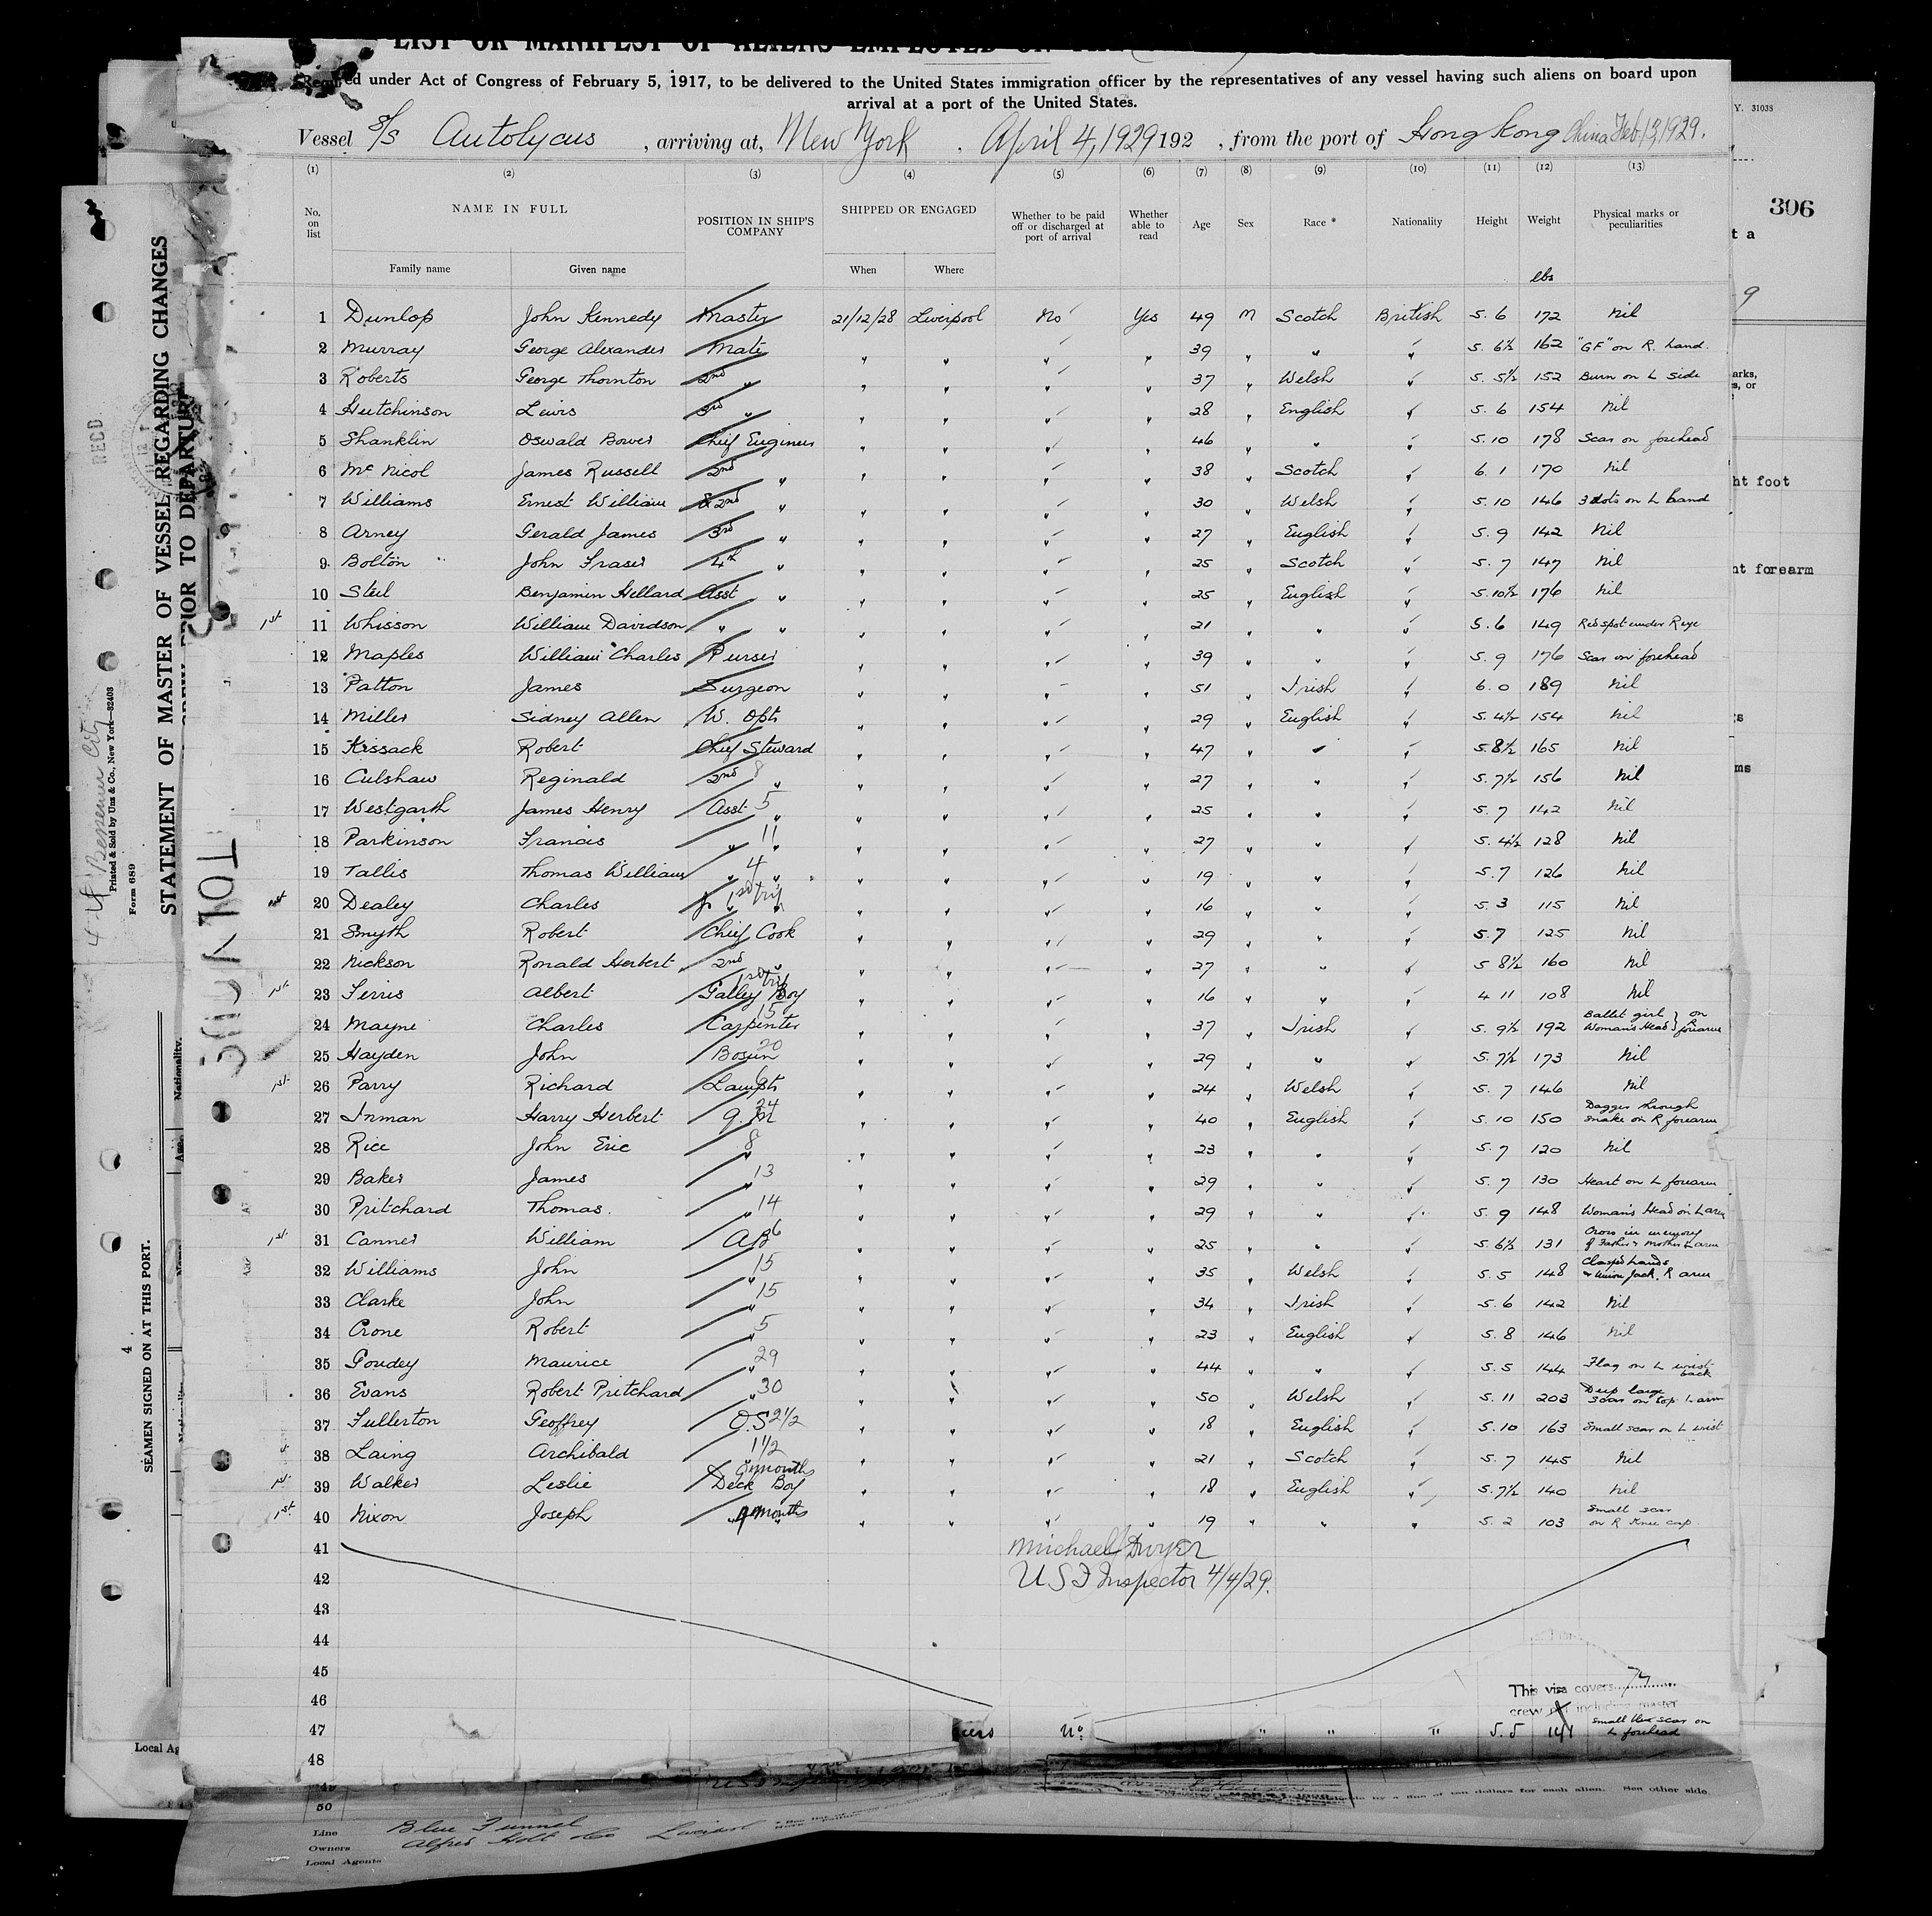 LIST OR MANIFEST OF ALIENS EMPLOYED ON THE
Required under Act of Congress of February 5, 1917, to be delivered to the United States immigration officer by the representatives of any vessel having such aliens on board upon
arrival at a port of the United States.
Vessel S/S Autolycus , arriving at, New York . April 4, 1929 192 , from the port of Hong Kong China Feb. 13, 1929.
(1) (2) (3) (4) (5) (6) (7) (8) (9) (10) (11) (12) (13)
No. on list NAME IN FULL POSITION IN SHIP'S COMPANY SHIPPED OR ENGAGED Whether to be paid off or discharged at port of arrival Whether able to read Age Sex Race * Nationality Height Weight Physical marks or peculiarities
Family name Given name When Where lbs
1 Dunlop John Kennedy Master 21/12/28 Liverpool No Yes 49 M Scotch British 5. 6 172 Nil
2 Murray George Alexander Mate " " " " 39 " " " 5. 6½ 162 "GF" on R. hand.
3 Roberts George Thornton 2nd " " " " " 37 " Welsh " 5. 5½ 152 Burn on L side
4 Hutchinson Lewis 3rd " " " " " 28 " English " 5. 6 154 Nil
5 Shanklin Oswald Bower Chief Engineer " " " " 46 " " " 5. 10 178 Scar on forehead
6 McNicol James Russell 2nd " " " " " 38 " Scotch " 6. 1 170 Nil
7 Williams Ernest William 2nd " " " " " 30 " Welsh " 5. 10 146 3 dots on L hand
8 Arney Gerald James 3rd " " " " " 27 " English " 5. 9 142 Nil
9 Bolton John Fraser 4th " " " " " 25 " Scotch " 5. 7 147 Nil
10 Steel Benjamin Hellard Asst " " " " " 25 " English " 5. 10½ 176 Nil
1st 11 Whisson William Davidson " " " " " " 21 " " " 5. 6 149 Red spot under R eye
12 Maples William Charles Purser " " " " 39 " " " 5. 9 176 Scar on forehead
13 Patton James Surgeon " " " " 51 " Irish " 6. 0 189 Nil
14 Miller Sidney Allen W. Optr " " " " 29 " English " 5. 4½ 154 Nil
15 Kissack Robert Chief Steward " " " " 47 " " " 5. 8½ 165 Nil
16 Culshaw Reginald 2nd " 8 " " " " 27 " " " 5. 7½ 156 Nil
17 Westgarth James Henry Asst " 5 " " " " 25 " " " 5. 7 142 Nil
18 Parkinson Francis " " 11 " " " " 27 " " " 5. 4½ 128 Nil
19 Tallis Thomas William " " 4 " " " " 19 " " " 5. 7 126 Nil
1st 20 Dealey Charles " " 1st trip " " " " 16 " " " 5. 3 115 Nil
21 Smyth Robert Chief Cook " " " " 29 " " " 5. 7 125 Nil
22 Nickson Ronald Herbert 2nd " " " " " 27 " " " 5 8½ 160 Nil
1st 23 Ferris Albert Galley Boy 1st trip " " " " 16 " " " 4 11 108 Nil
24 Mayne Charles Carpenter 15 " " " " 37 " Irish " 5. 9½ 192 Ballet girl } on Woman's Head } R forearm
25 Hayden John Bosun 20 " " " " 29 " " " 5. 7½ 173 Nil
1st 26 Parry Richard Lamptr 6 " " " " 24 " Welsh " 5. 7 146 Nil
27 Inman Harry Herbert Q. M 24 " " " " 40 " English " 5. 10 150 Dagger through snake on R forearm
28 Rice John Eric " 8 " " " " 23 " " " 5. 7 120 Nil
29 Baker James " 13 " " " " 29 " " " 5. 7 130 Heart on L forearm
30 Pritchard Thomas. " 14 " " " " 29 " " " 5. 9 148 Woman's Head on L arm
1st 31 Canner William AB 6 " " " " 25 " " " 5. 6½ 131 Cross in memory of Father & Mother L arm
32 Williams John " 15 " " " " 35 " Welsh " 5. 5 148 Clasped hands & Union Jack. R arm
33 Clarke John " 15 " " " " 34 " Irish " 5. 6 142 Nil
34 Crone Robert " 5 " " " " 23 " English " 5. 8 146 Nil
35 Goudey Maurice " 29 " " " " 44 " " " 5. 5 144 Flag on L wrist back
36 Evans Robert Pritchard " 30 " " " " 50 " Welsh " 5. 11 203 Deep large scar on top L arm
37 Fullerton Geoffrey O.S 2½ " " " " 18 " English " 5. 10 163 Small scar on L wrist
38 Laing Archibald " 1½ " " " " 21 " Scotch " 5. 7 145 Nil
1st 39 Walker Leslie Deck Boy 9 months " " " " 18 " English " 5. 7½ 140 Nil
1st 40 Nixon Joseph " " 9 months " " " " 19 " " " 5. 2 103 Small scar on R Knee cap
41 Michael Dwyer
42 USI Inspector 4/4/29.
43
44
45
46 This visa covers 74
crew including master
47 No " " " 5. 5 141 Small blue scar on L forehead
48
50
ten dollars for each alien. See other side.
Line Blue Funnel
Owners Alfred Holt & Co Liverpool
Local Agents
STATEMENT OF MASTER OF VESSEL REGARDING CHANGES
PRIOR TO DEPARTURE
RECD
Form 689
Printed & Sold by Unz & Co., New York—32403
4 Bessemer City
SEAMEN SIGNED ON AT THIS PORT.
4
Nationality.
Age.
Name
Local Ag
Y. 31038
306
t a
9
arks,
s, or
ht foot
ht forearm
ts
ms